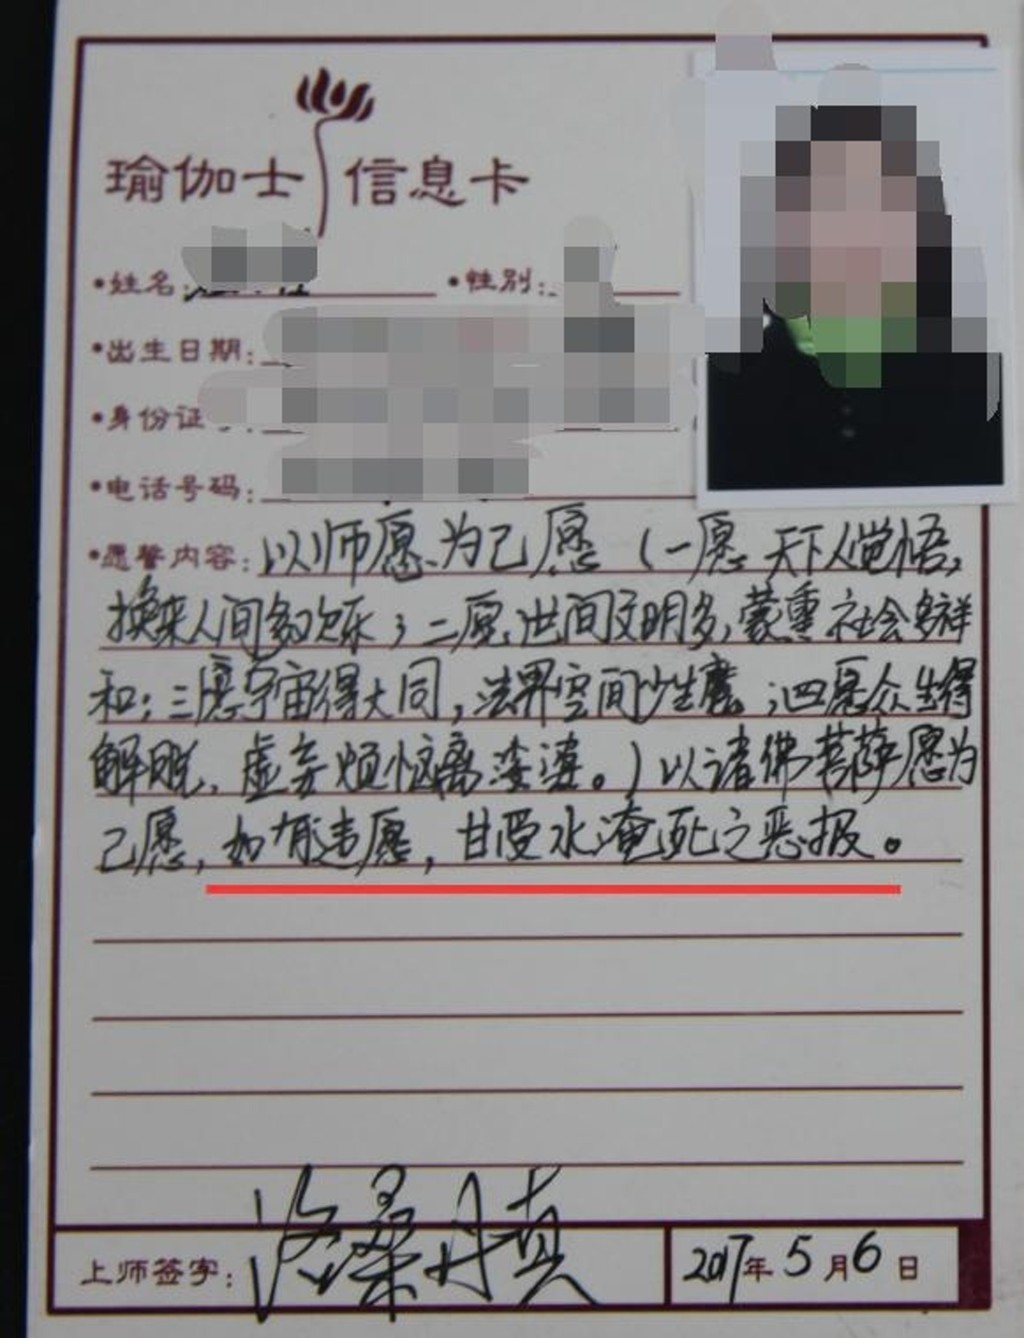 瑜伽士信息卡
•姓名:
•性别:
•出生日期:
•身份证
•电话号码:
•愿誓内容:以师愿为己愿（一愿天下人觉悟,
换来人间多欢乐;二愿世间文明多,蒙熏社会多祥
和;三愿宇宙得大同,法界空间少生魔;四愿众生得
解脱,虚弃烦恼离娑婆。)以诸佛菩萨愿为
己愿,如有违愿,甘受水淹死之恶报。
上师签字:洛桑丹真
2017年5月6日